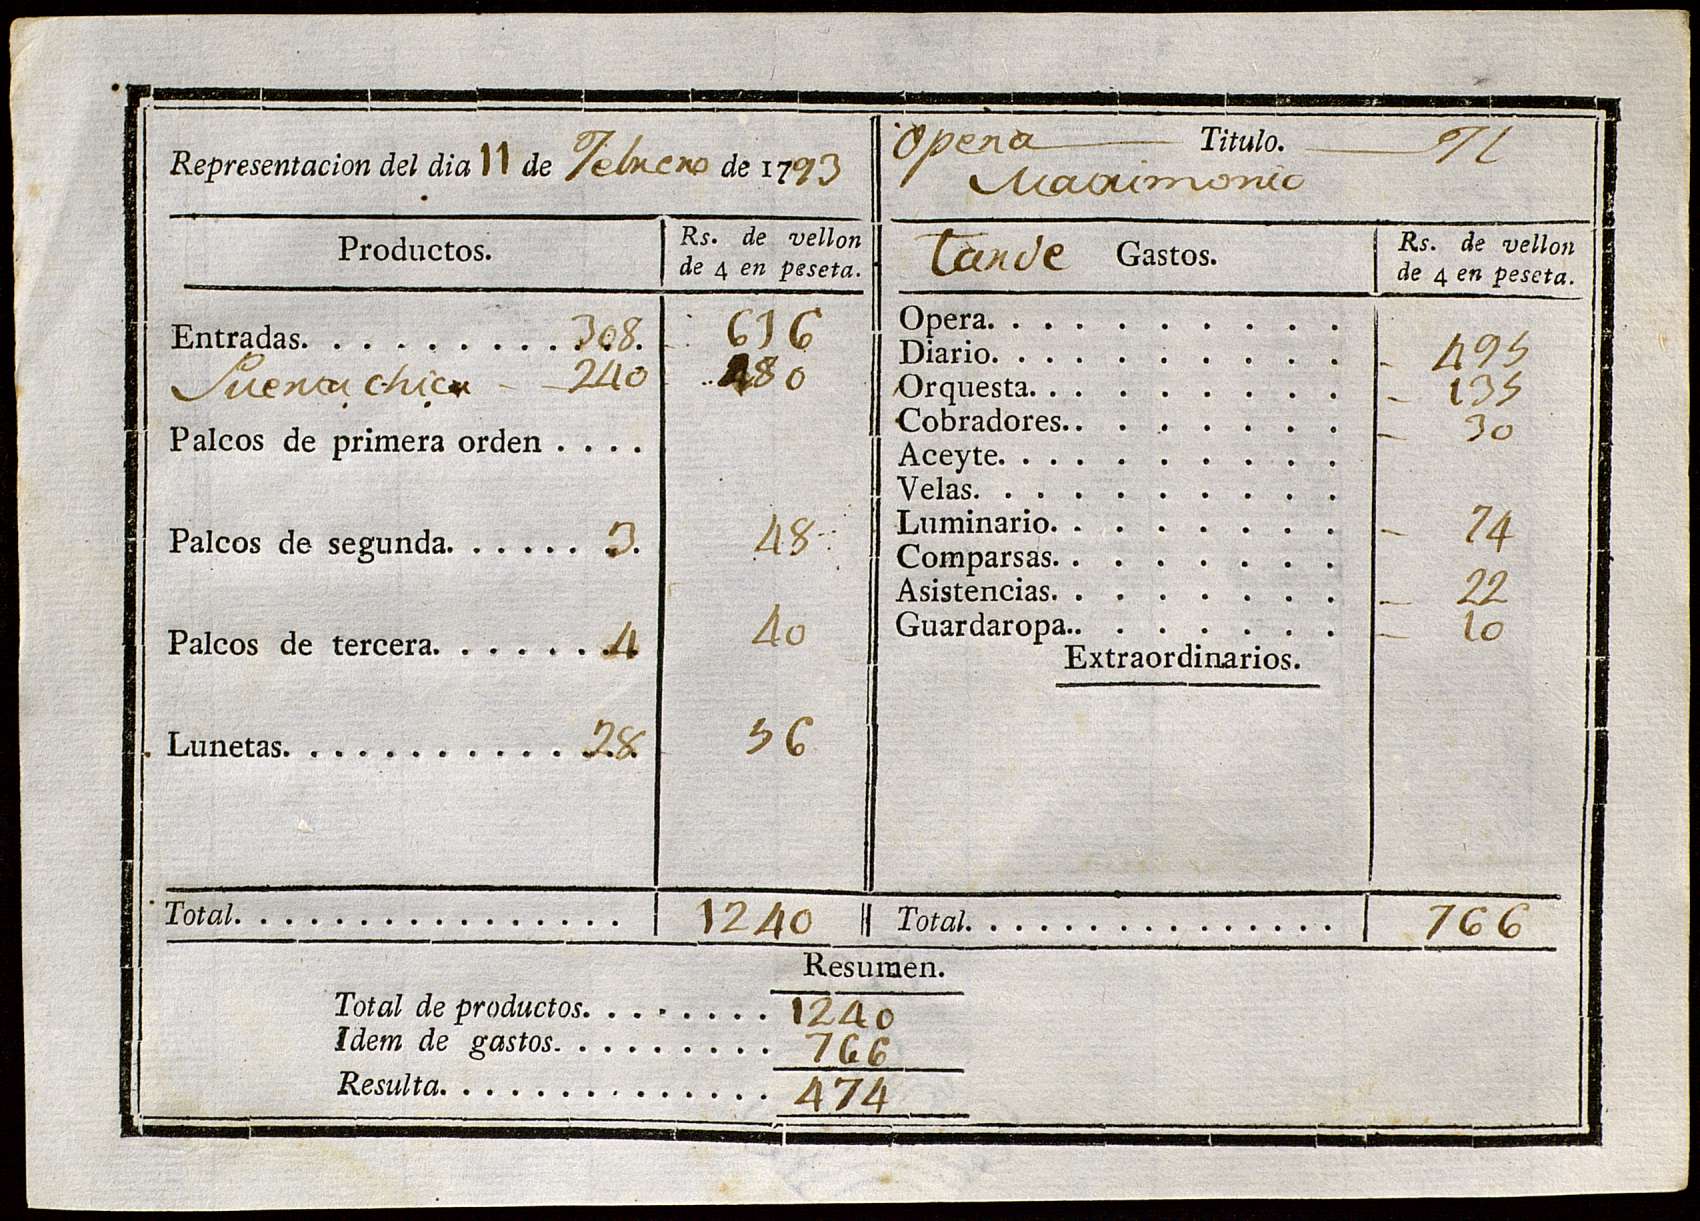 Representacion del dia 11 de Febrero de 1793
Opera Titulo. Il
Matrimonio
Productos. Rs. de vellon
de 4 en peseta.
Tarde Gastos. Rs. de vellon
de 4 en peseta.
Entradas. 308. 616
Puerta chica 240 480
Palcos de primera orden . . . .
Palcos de segunda. 3. 48
Palcos de tercera. 4 40
Lunetas. 28 56
Total. 1240
Opera.
Diario. 495
Orquesta. 135
Cobradores. 30
Aceyte.
Velas.
Luminario. 74
Comparsas.
Asistencias. 22
Guardaropa. 10
Extraordinarios.
Total. 766
Resumen.
Total de productos. 1240
Idem de gastos. 766
Resulta. 474